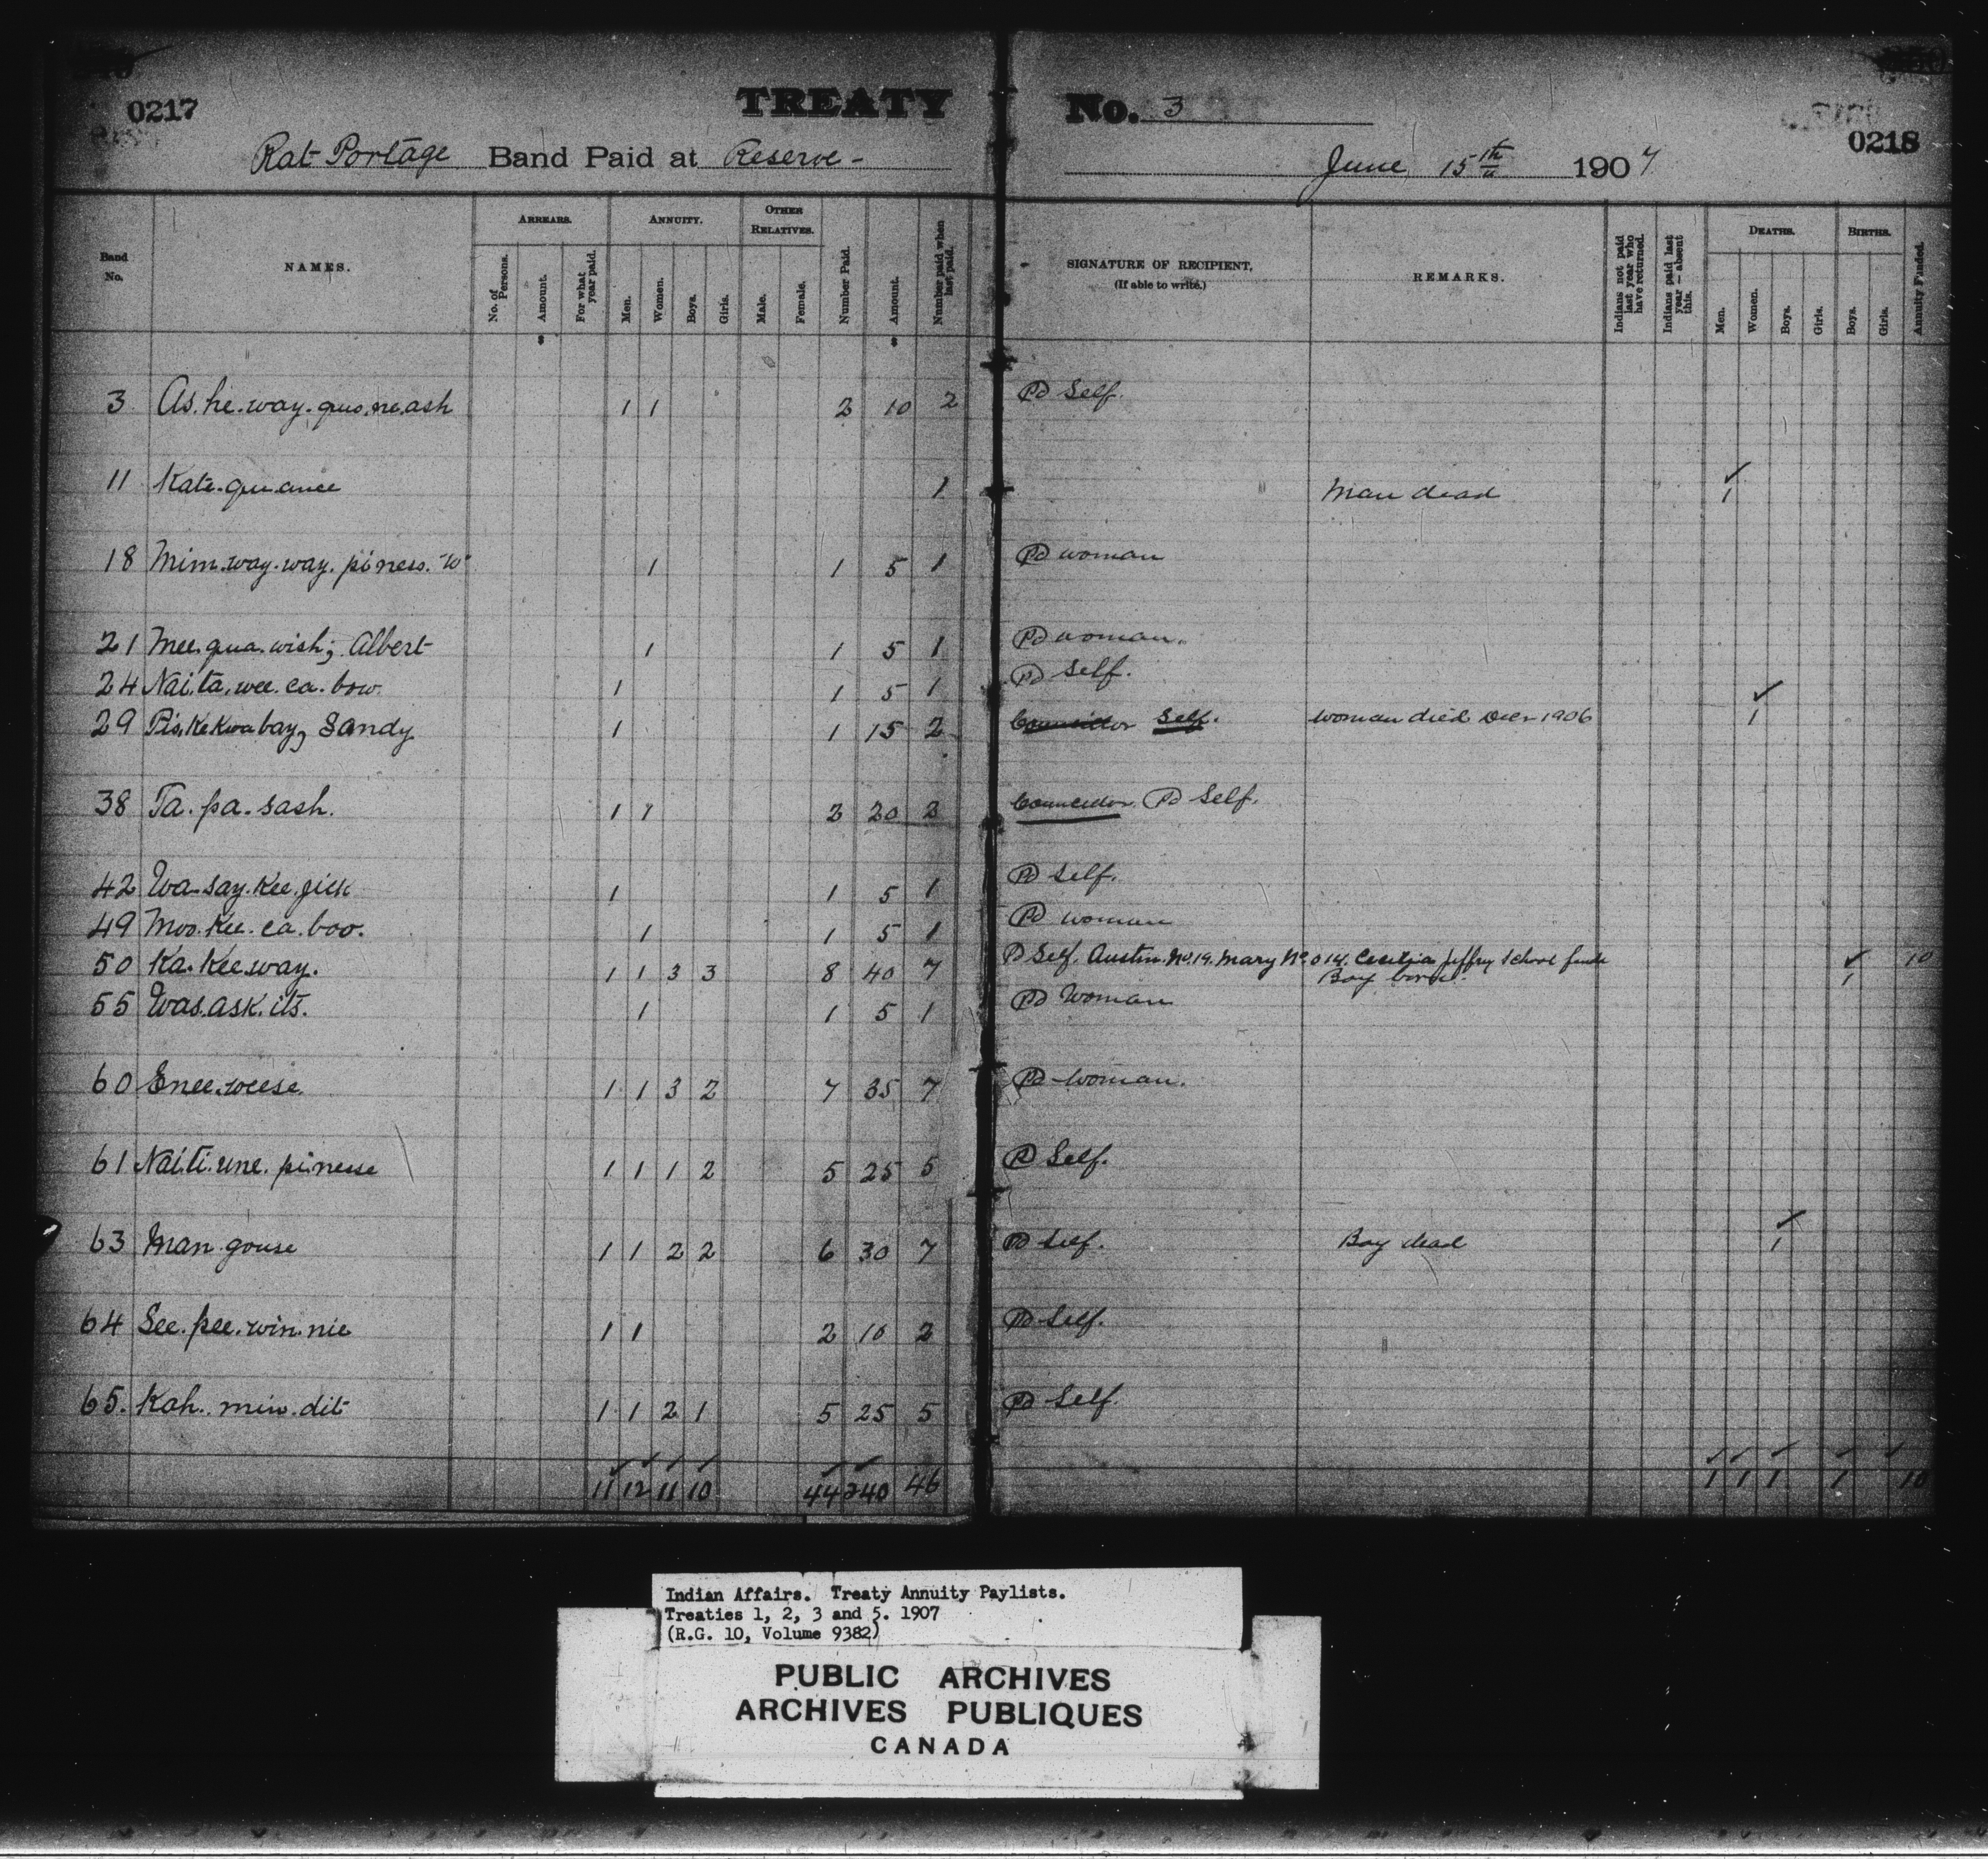 0217
TREATY No. 3
0218
Rat Portage Band Paid at Reserve - June 15th 1907
Band No.
NAMES.
ARREARS.
No. of Persons.
Amount.
For what year paid.
ANNUITY.
Men.
Women.
Boys.
Girls.
OTHER RELATIVES.
Male.
Female.
Number Paid.
Amount.
Number paid when last paid.
SIGNATURE OF RECIPIENT,
(If able to write.)
REMARKS.
Indians not paid last year who have returned.
Indians paid last year — absent this.
DEATHS.
Men.
Women.
Boys.
Girls.
BIRTHS.
Boys.
Girls.
Annuity Funded.
3 As.he.way.quo.ne.ash 1 1 2 10 2 Pd Self.
11 Kate.que.ance 1 Man dead 1
18 Mim.way.way.piness. "W" 1 1 5 1 Pd woman
21 Mee.qua.wish; Albert 1 1 5 1 Pd woman.
24 Nai.ta.wee.ca.bow 1 1 5 1 Pd Self.
29 Pis.ke.kwa bay, Sandy 1 1 15 2 Councillor Self. woman died Decr 1906 1
38 Ta.pa.sash. 1 1 2 20 2 Councillor. Pd Self.
42 Wa.say.kee.jick 1 1 5 1 Pd Self.
49 Moo.kee.ca.boo. 1 1 5 1 Pd woman
50 Ka.kee.way. 1 1 3 3 8 40 7 Pd Self. Austin. No 19. Mary No 014. Cecilia Jeffrey School funds 10
Boy born. 1
55 Was.ask.its. 1 1 5 1 Pd Woman
60 Enee.weese. 1 1 3 2 7 35 7 Pd Woman.
61 Nai.ti.une.pinesse 1 1 1 2 5 25 5 Pd Self.
63 Man.gouse 1 1 2 2 6 30 7 Pd Self. Boy dead 1
64 See.pee.win.nie 1 1 2 10 2 Pd Self.
65. Kah.min.dit 1 1 2 1 5 25 5 Pd Self.
11 12 11 10 44 240 46 1 1 1 1 10
Indian Affairs. Treaty Annuity Paylists.
Treaties 1, 2, 3 and 5. 1907
(R.G. 10, Volume 9382)
PUBLIC ARCHIVES
ARCHIVES PUBLIQUES
CANADA